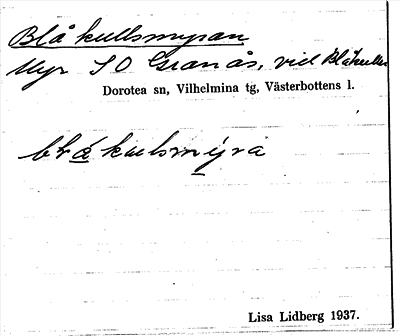 Blåkullsmyran
Myr SO Granås, vid Blåkullen
Dorotea sn, Vilhelmina tg, Västerbottens l.
blåkulsmýra
Lisa Lidberg 1937.